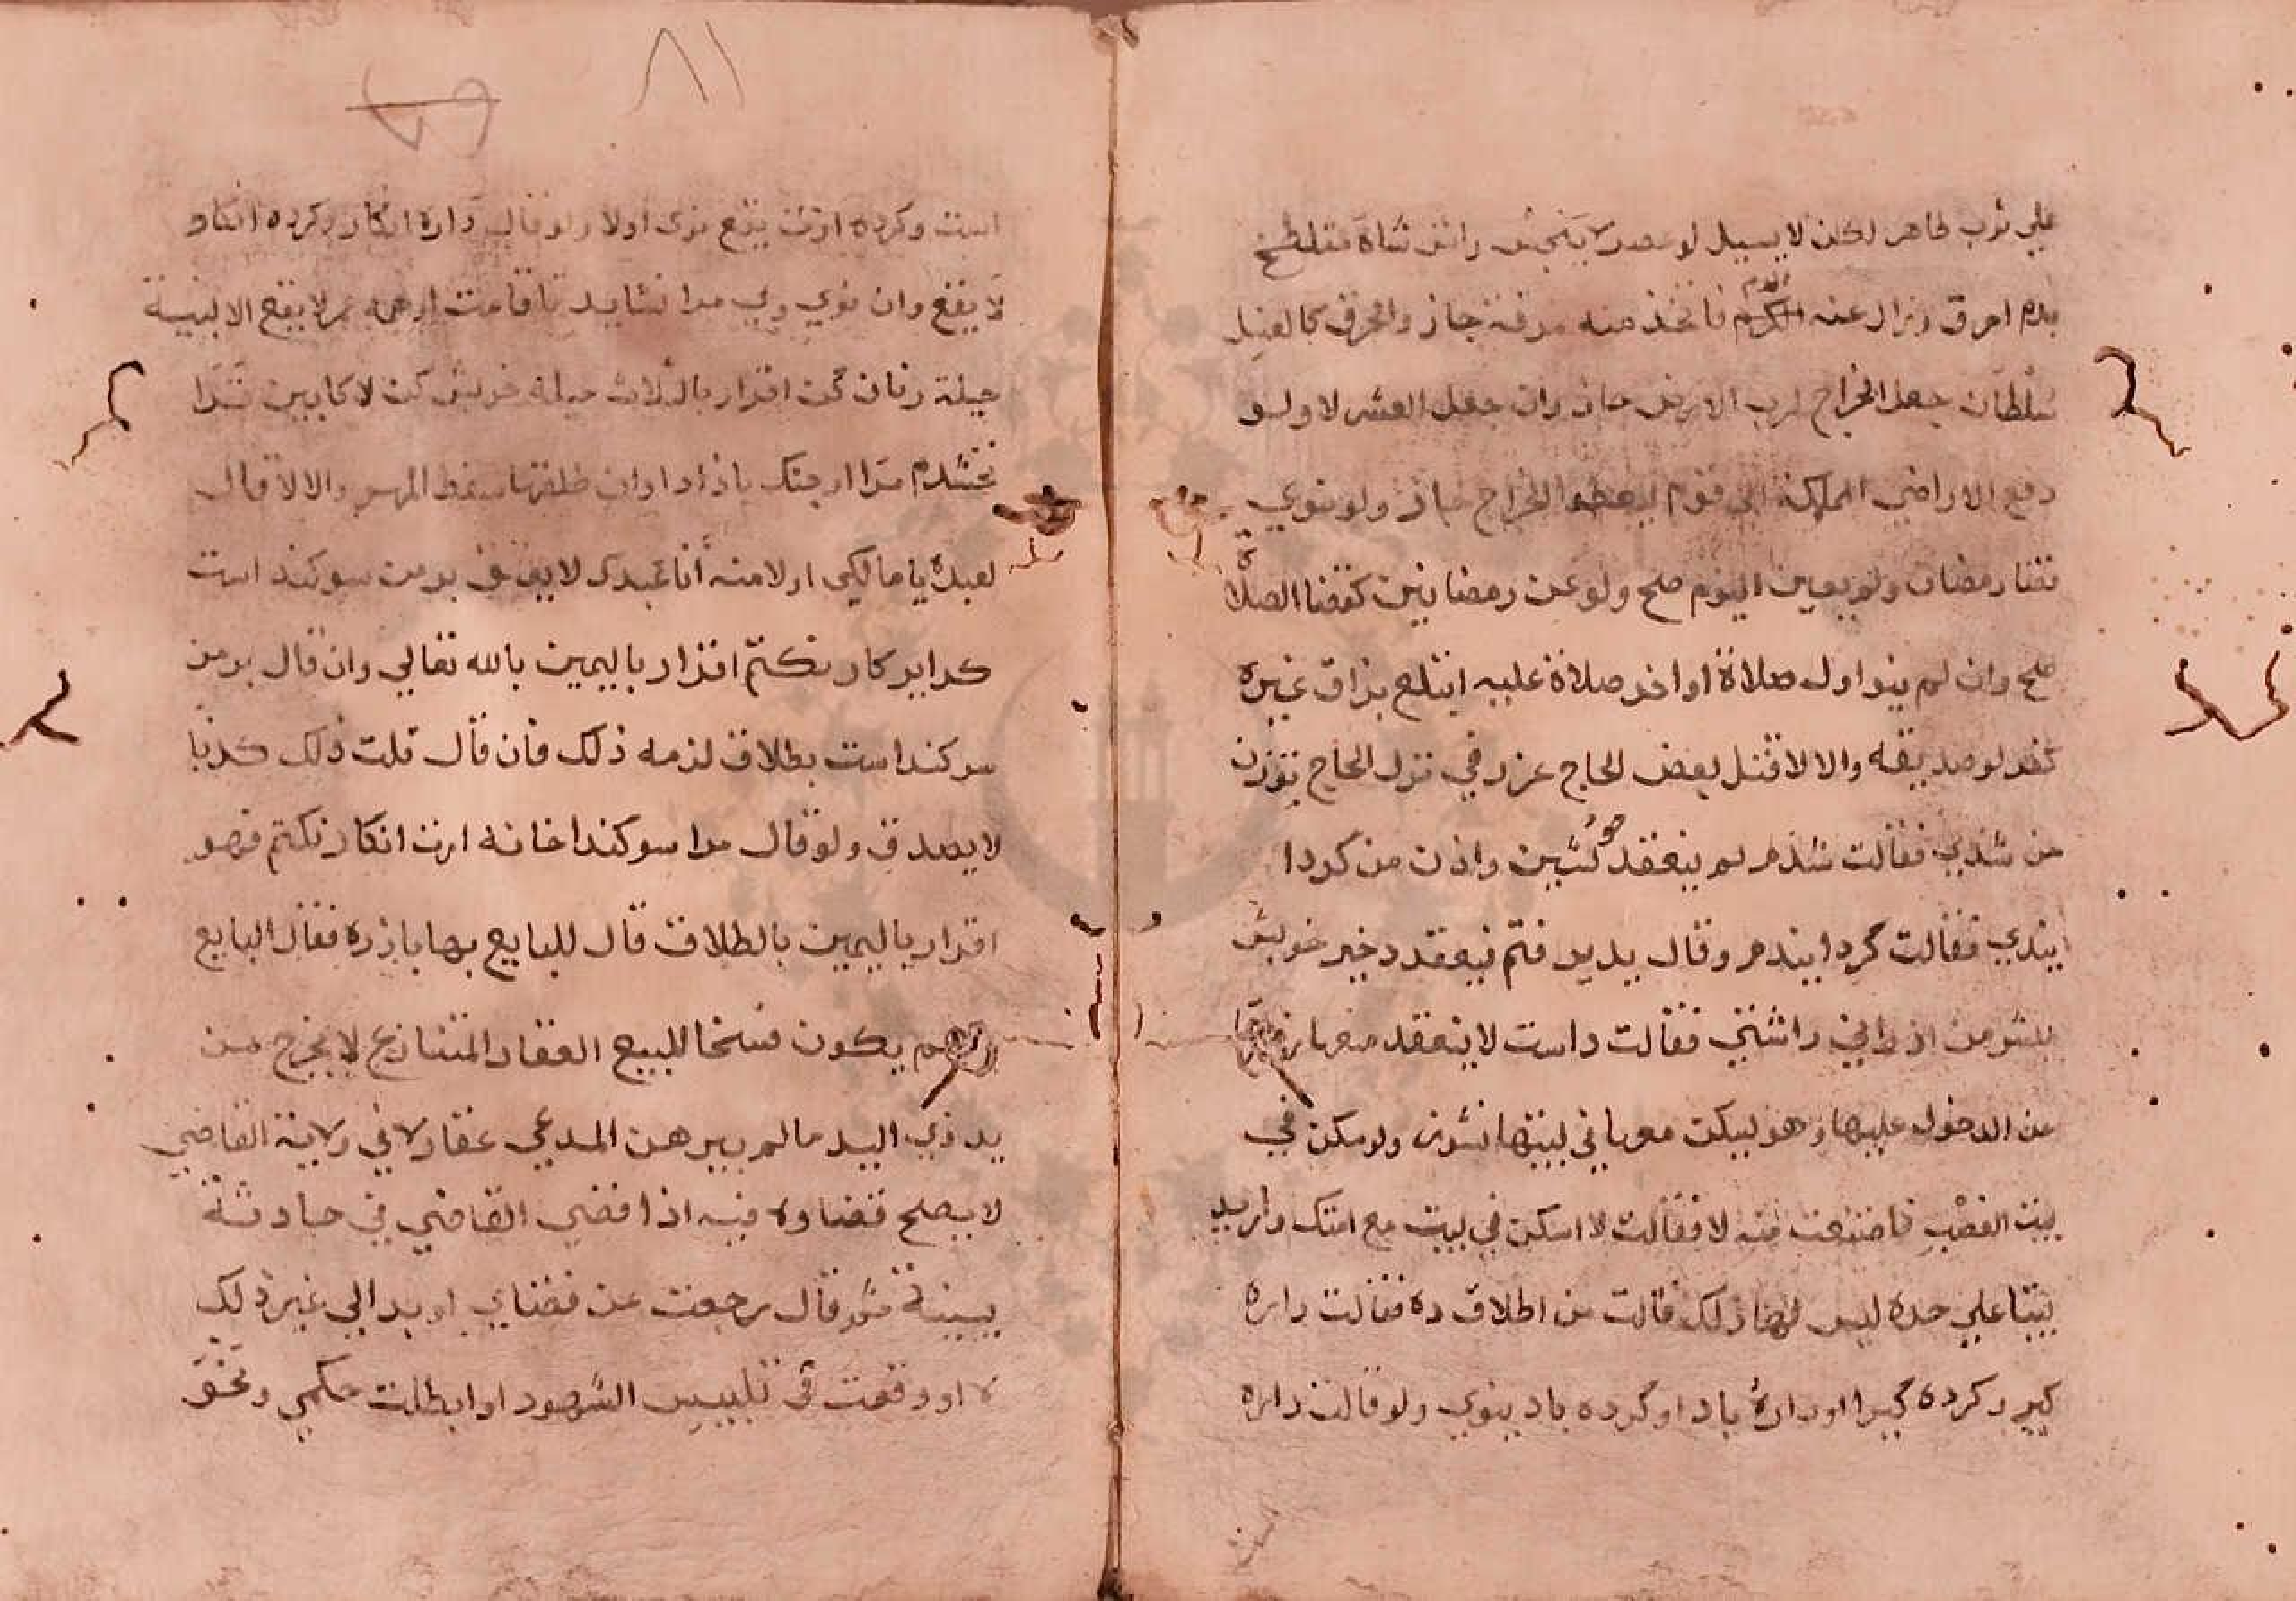 علي ثوب طاهر لكن لا يسيل لو عصر لا يتنجس راس شاة متلطخ
بدم احرق وزال عنه الدم فاتخذ منه مرقة جاز والحرق كالغسل
سلطان جعل الخراج لرب الارض جاز وان جعل العشر لا ولو
دفع الاراضي المملكة الى قوم ليعطوا الخراج جاز ولو نوي
قضا رمضان ولم يعين اليوم صح ولو عن رمضانين كقضا الصلاة
صح وان لم ينو اول صلاة او اخر صلاة عليه ابتلع بزاق غيره
كفر لو صديقه والا لا قتل بعض الحاج عزر في ترك الحاج توزن
من شدي فقالت شدم لم ينعقد خويشتن وازن من كردا
نيدي فقالت كردانيدم وقال بديرفتم ينعقد دختر خويش
پسر من ارزاني داشتي فقالت داشت لا ينعقد منعها زوجها
عن الدخول عليها وهو يسكن معها في بيتها نشوز ولو سكن في
بيت الغصب فامتنعت منه لا فقالت لا اسكن في بيت مع امتك واريد
بيتا علي حده ليس لها ذلك قالت من اطلاق ده فقالت داره
كير وكرده كير او داره باد او كرده باد ينوي ولو قالت داره
۸۱
است وكرده است يقع نوى اولا ولو قال داره انكار وكرده انكار
لا يقع وان نوي وي مرا نشايد تا قامت او همه عمر لا يقع الا بنية
حيلة زنان كن اقرار بالثلاث حيله خويش كن لا كابين ترا
بخشيدم مرا از چنك باز دار ان طلقها سقط المهر والا لا قال
لعبده يا مالكي او لامته انا عبدك لا يعتق بر من سوكند است
كه اين كار نكنم اقرار باليمين بالله تعالي وان قال بر من
سوكند است بطلاق لزمه ذلك فان قال قلت ذلك كذبا
لا يصدق ولو قال مرا سوكند خانه است انكار نكنم فهو
اقرار باليمين بالطلاق قال للبايع بها باز ده فقال البايع
بدهم يكون فسخا للبيع العقار المتنازع لا يخرج من
يد ذي اليد مالم يبرهن المدعي عقار لا في ولاية القاضي
لا يصلح قضاوه فيه اذا قضي القاضي في حادثة
ببينة ثم قال رجعت عن قضاي او بدا لي غير ذلك
او وقعت في تلبيس الشهود او ابطلت حكمي ونحو